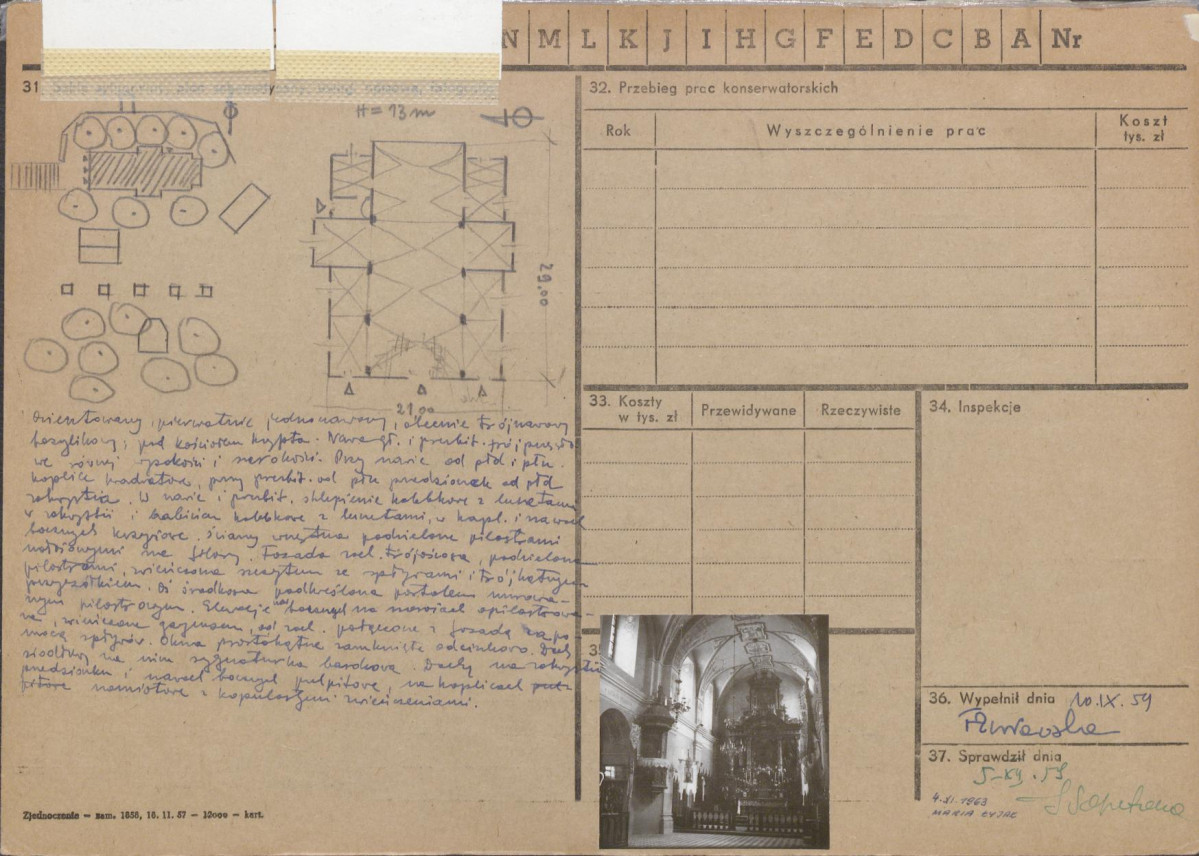 N M L K J I H G F E D C B A Nr
31
H = 13 m
29,00
21,00
Orientowany, pierwotnie jednonawowy, obecnie trójnawowy
bazylikowy, pod kościołem krypta. Nawa gł. i prezbit. trójprzęsł.
we równej wysokości i szerokości. Przy nawie od płd i płn.
kaplice kwadratowe, przy prezbit. od płn przedsionek od płd
zakrystia. W nawie i prezbit. sklepienie kolebkowe z lunetami
w zakrystii i kolebkowe z lunetami, w kapl. i nawach
bocznych krzyżowe. Ściany wnętrza podzielone pilastrami
na filary. Fasada zach. trójosiowa, podzielona
pilastrami, zwieńczona szczytem ze spływami i trójkątnym
przyczółkiem. Oś środkowa podkreślona portalem murowa-
nym pilastrowym. Elewacje boczne na nawach opilastrowa-
ne, zwieńczone gzymsem, od zach. połączone z fasadą za po-
mocą spływów. Okna prostokątne zamknięte odcinkowo. Dach
siodłowy na nim sygnaturka barokowa. Dachy na zakrystii
przedsionku i nawach bocznych pulpitowe, na kaplicach
namiotowe z kopulastymi zwieńczeniami.
Zjednoczenie — zam. 1858, 16. 11. 57 — 12000 — kert.
32. Przebieg prac konserwatorskich
Rok
Wyszczególnienie prac
Koszt
tys. zł
33. Koszty
w tys. zł
Przewidywane
Rzeczywiste
34. Inspekcje
35
36. Wypełnił dnia 10.IX.59
37. Sprawdził dnia
5-XII.59
4.XI.1963
MARIA